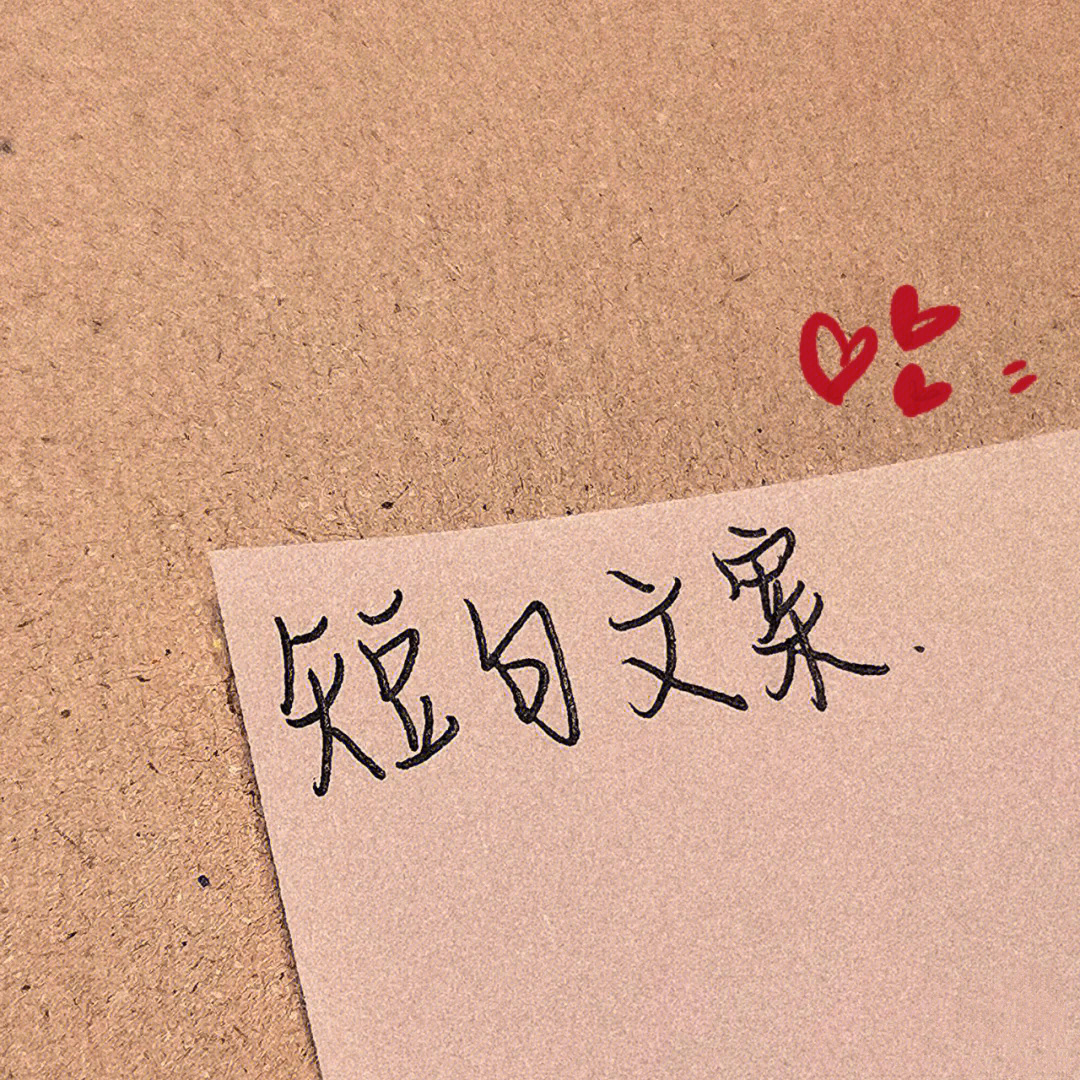 短句文案.